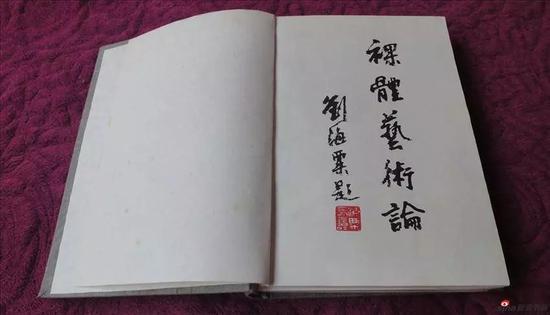 裸體藝術論
劉海粟題